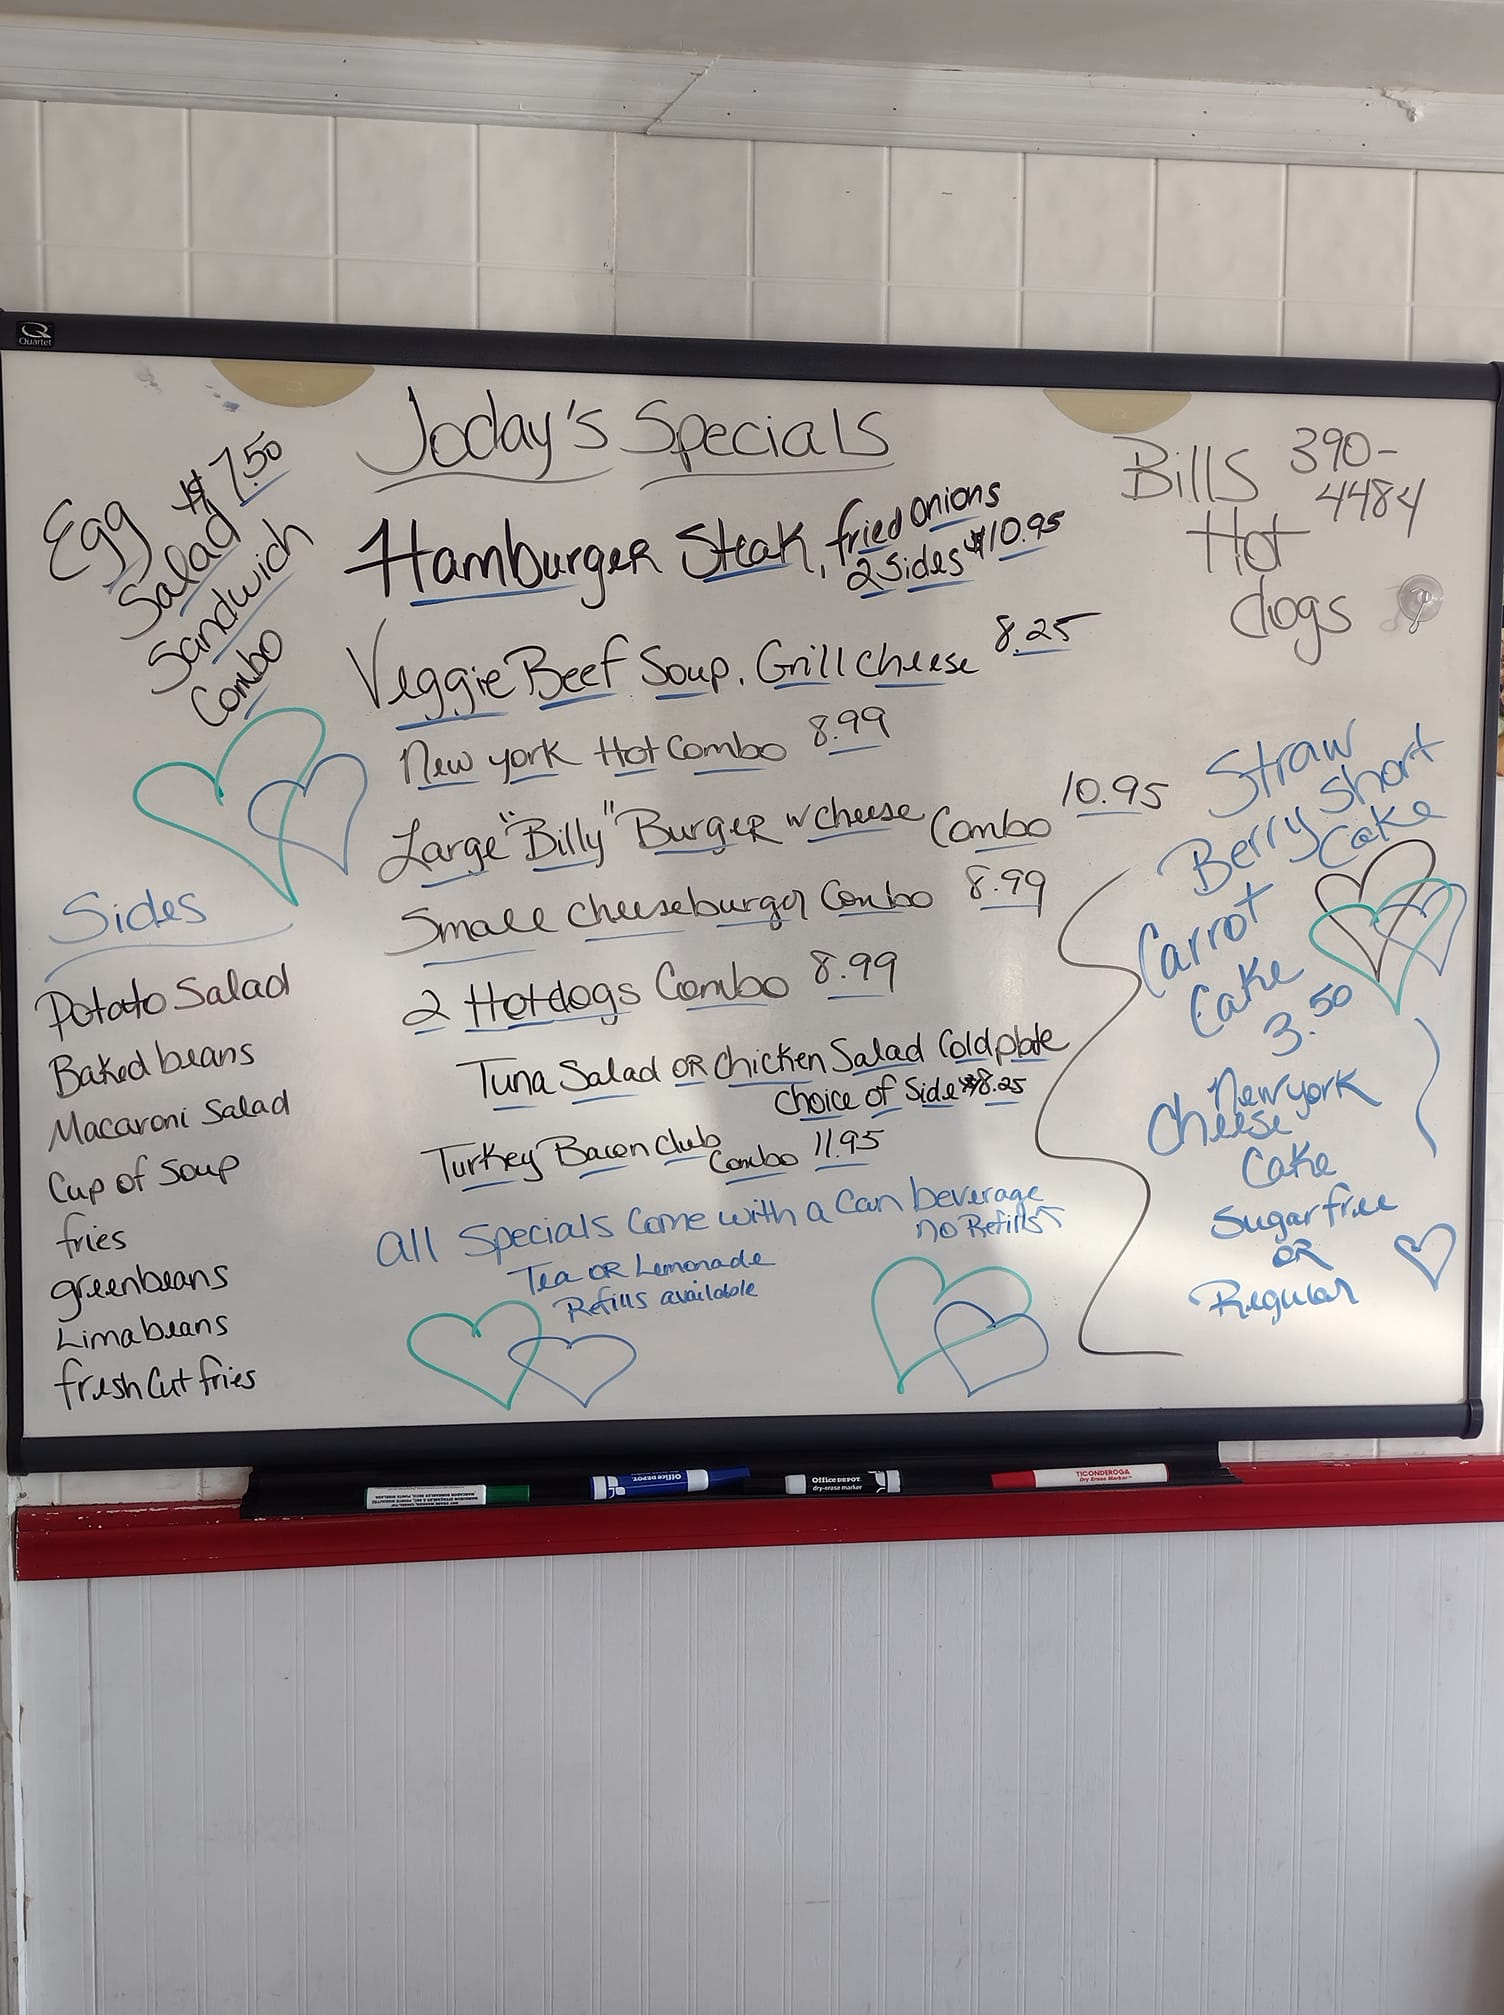 Quartet
Today's Specials
Egg
Salad $7.50
Sandwich
Combo
Hamburger Steak, fried onions
2 Sides $10.95
Veggie Beef Soup, Grill cheese 8.25
New york Hot Combo 8.99
Large "Billy" Burger w cheese Combo 10.95
Small cheeseburger Combo 8.99
2 Hotdogs Combo 8.99
Tuna Salad OR Chicken Salad Cold plate
Choice of Side $8.25
Turkey Bacon Club
Combo 11.95
All Specials Come with a Can beverage
no Refills
Tea OR Lemonade
Refills available
Sides
Potato Salad
Baked beans
Macaroni Salad
Cup of Soup
fries
greenbeans
Lima beans
fresh Cut fries
Bills 390-
4484
Hot
dogs
Straw
Berry Short
Cake
Carrot
Cake
3.50
New york
Cheese
Cake
Sugar free
OR
Regular
Office DEPOT
Office DEPOT
dry-erase marker
TICONDEROGA
Dry Erase Marker